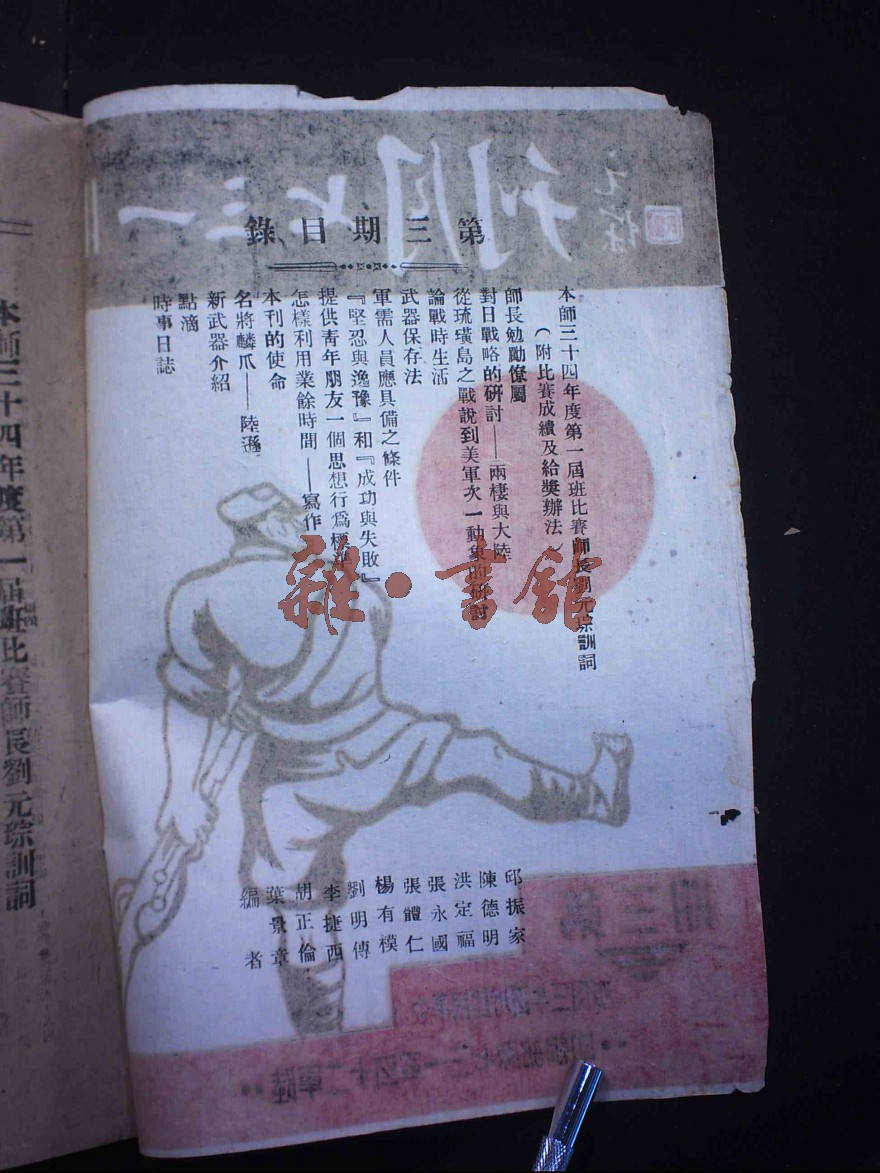 第三期目錄
本師三十四年度第一屆班比賽師長劉元琮訓詞
（附比賽成績及給獎辦法）
師長勉勵僚屬
對日戰略的研討——兩棲與大陸
從琉璜島之戰說到美軍次一動象的研討
論戰時生活
武器保存法
軍需人員應具備之條件
『堅忍與逸豫』和『成功與失敗』
提供青年朋友一個思想行爲標準
怎樣利用業餘時間——寫作
本刊的使命
名將麟爪——陸遜
新武器介紹
點滴
時事日誌
邱振家
陳德明
洪定福
張永國
張體仁
楊有樸
劉明傳
李捷西
胡正倫
葉景章
編者
本師三十四年度第一屆班比賽師長劉元琮訓詞
雜·書館
一三七月刊
第三期